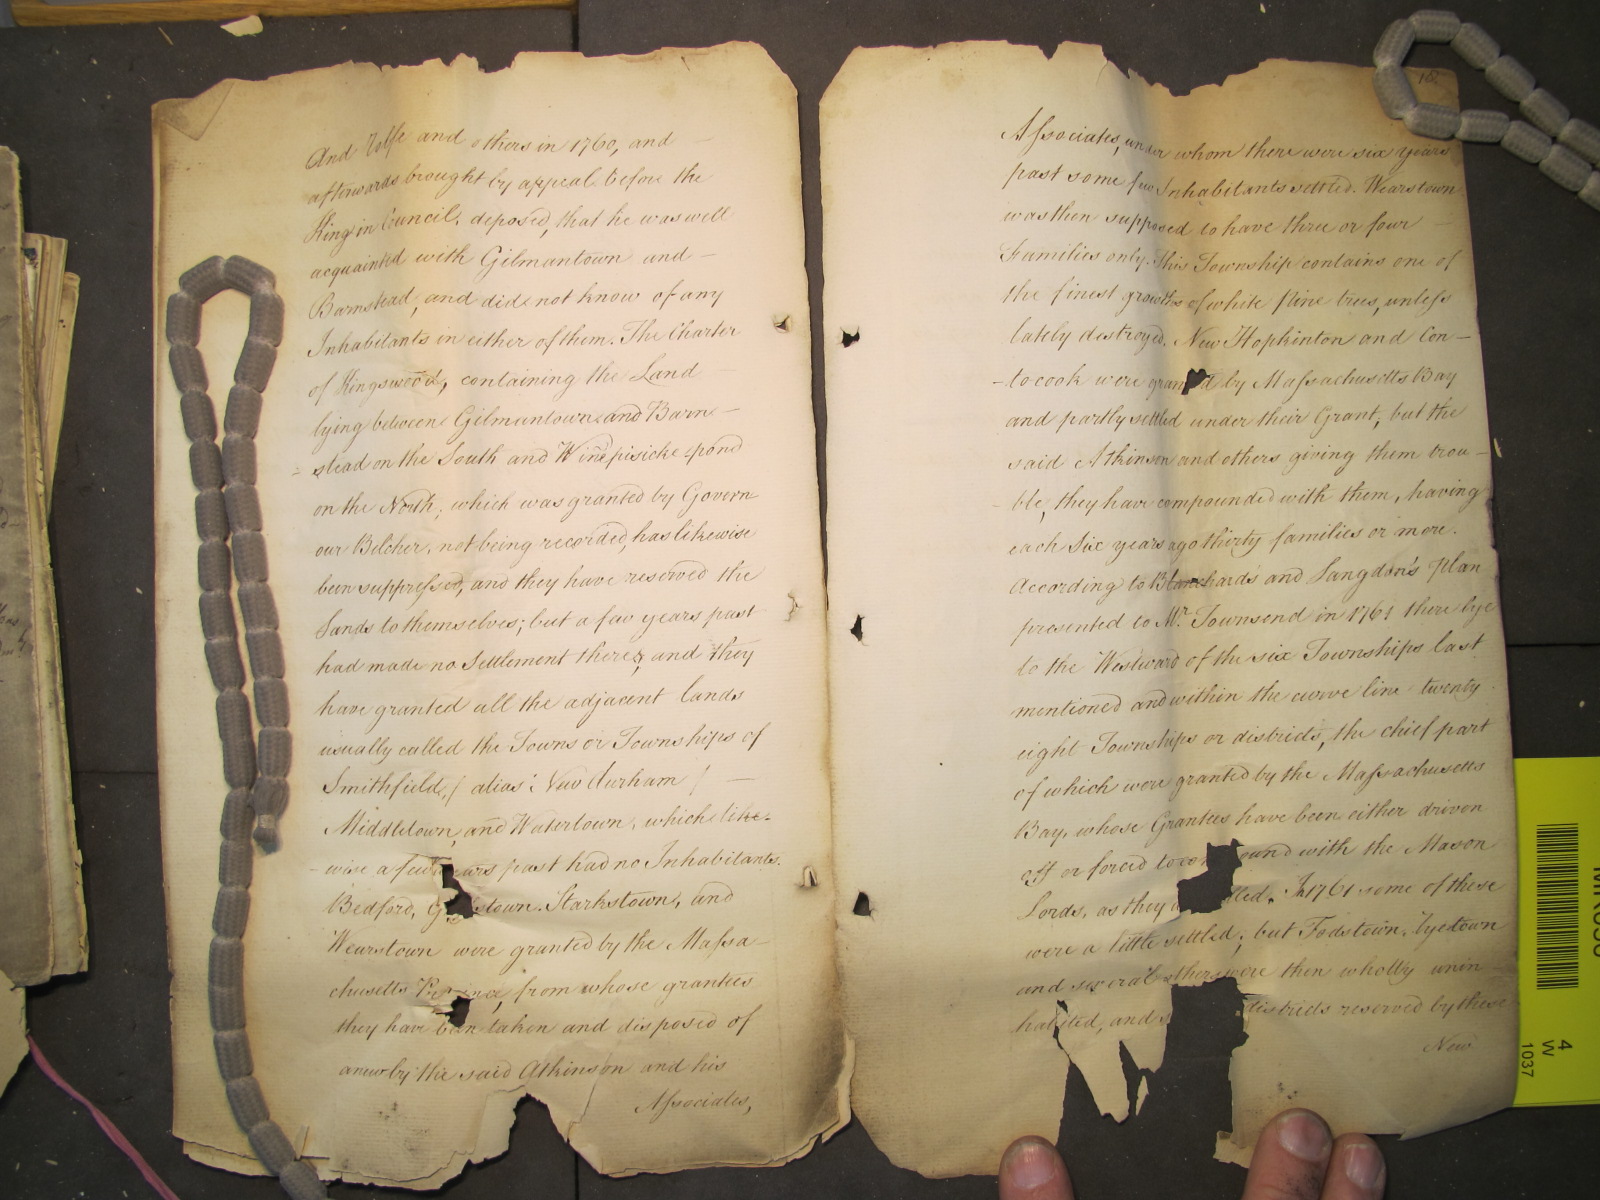 And Rolfe and others in 1760, and —
afterwards brought by appeal before the
King in Council, deposed, that he was well
acquainted with Gilmantown and —
Barnstead, and did not know of any
Inhabitants in either of them. The Charter
of Kingswood, containing the Land
lying between Gilmantown and Barn-
=stead on the South and Winepisickepond
on the North; which was granted by Govern
our Belcher, not being recorded, has likewise
been suppressed, and they have reserved the
Lands to themselves; but a few years past
had made no Settlement there; and they
have granted all the adjacent lands
usually called the Towns or Townships of
Smithfield, / alias: New Durham / —
Middletown, and Watertown, which like-
-wise a few years past had no Inhabitants.
Bedford, town. Starkstown, and
Wearstown were granted by the Massa-
chusetts Province, from whose grantees
they have been taken and disposed of
anew by the said Atkinson and his
Associates,
Associates, under whom there were six years
past some few Inhabitants settled. Wearstown
was then supposed to have three or four —
Families only. This Township contains one of
the finest growths of white Pine trees, unless
lately destroyed. New Hopkinton and Con-
-tocook were granted by Massachusetts Bay
and partly settled under their Grant, but the
said Atkinson and others giving them trou-
-ble, they have compounded with them, having
each Six years ago thirty families or more.
According to Blanchard's and Langdon's Plan
presented to Mr. Townsend in 1761 there lye
to the Westward of the six Townships last
mentioned and within the curve line twenty
eight Townships or districts, the chief part
of which were granted by the Massachusetts
Bay, whose Grantees have been either driven
off or forced to compound with the Mason
Lords, as they are called. In 1761 some of these
were a little settled; but Fodstown, Lyetown
and several others were then wholly unin
habited, and districts reserved by these
New
4
W
1037